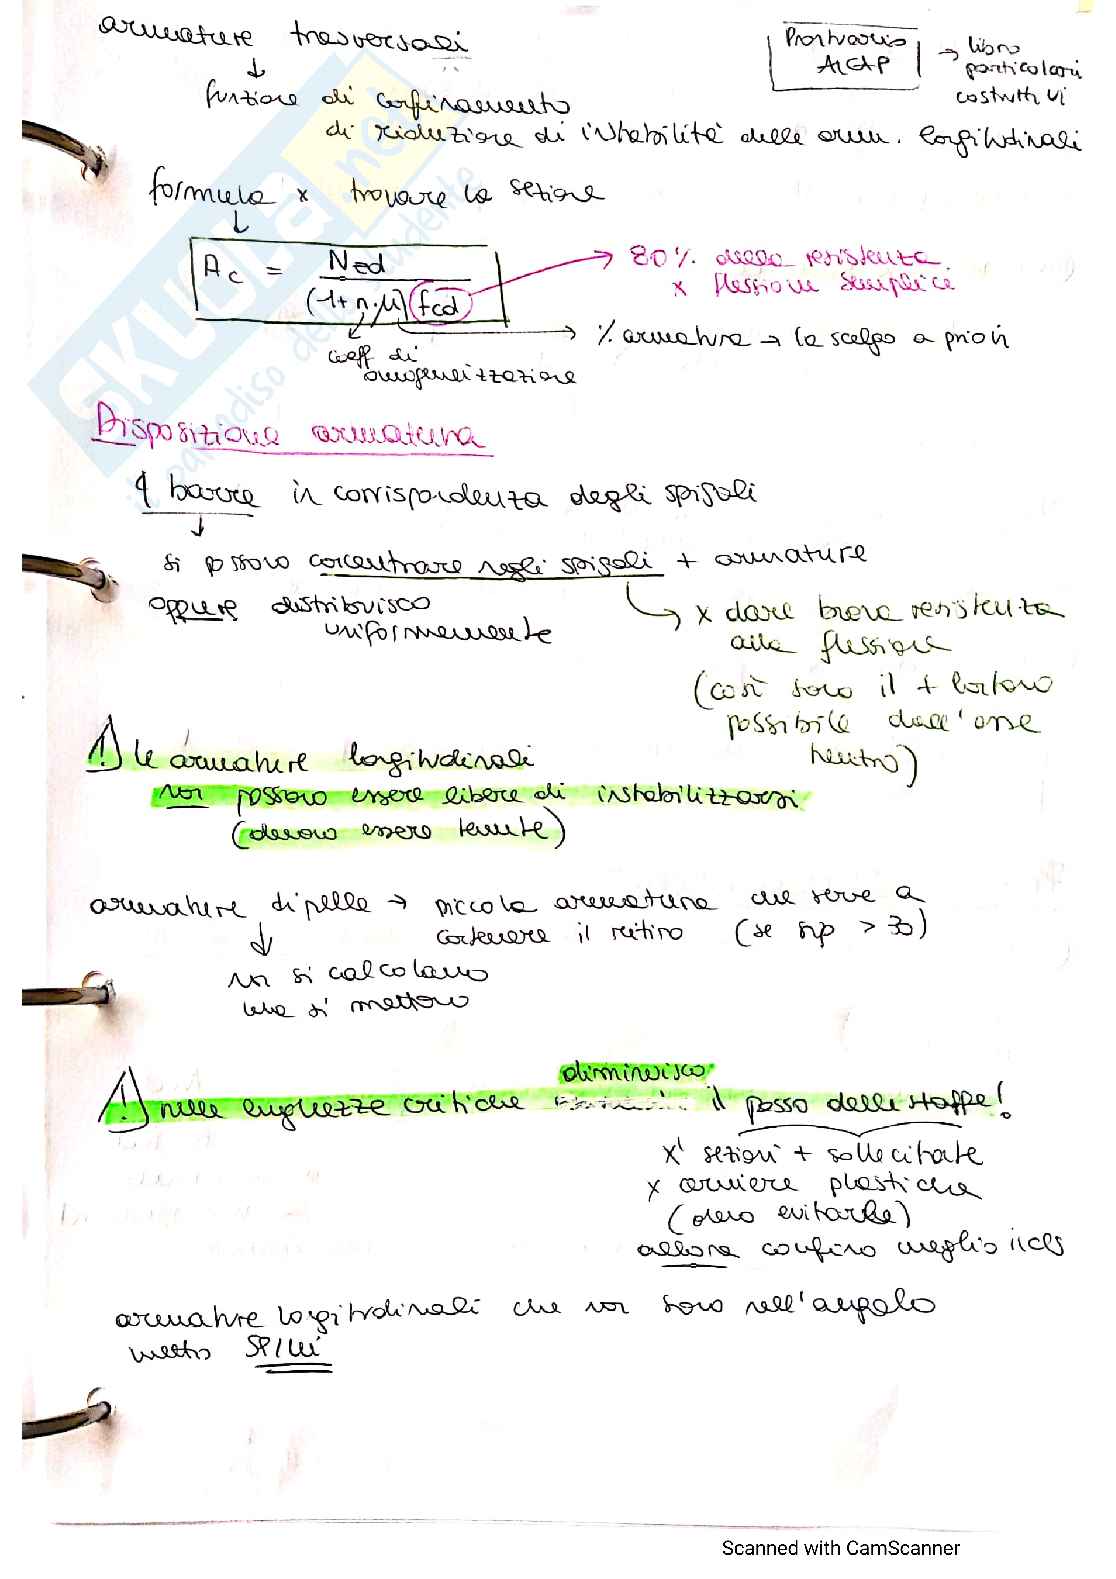 armature trasversali
Prontuario
AICAP
→ libro
particolari
costruttivi
↓
funzione di confinamento
di riduzione di instabilità delle arm. longitudinali
formula x trovare la sezione
↓
Ac = Ned / (1+n·μ) fcd
80% della resistenza
x flessione semplice
→ % armatura → la scelgo a priori
coeff di
omogeneizzazione
Disposizione armatura
4 barre in corrispondenza degli spigoli
↓
si possono concentrare negli spigoli + armature
oppure distribuisco
uniformemente
x dare buona resistenza
alla flessione
(così sono il + lontano
possibile dall'asse
neutro)
⚠ le armature longitudinali
non possono essere libere di instabilizzarsi
(devono essere tenute)
armature di pelle → piccola armatura che serve a
contenere il ritiro (se sup > 30)
↓
non si calcolano
ma si mettono
diminuisco
⚠ nelle lunghezze critiche il passo delle staffe!
x' sezioni + sollecitate
x cerniere plastiche
(devo evitarle)
allora confino meglio il cls
armature longitudinali che non sono nell'angolo
metto SPILLI
SKUOLA.net
il paradiso dello studente
Scanned with CamScanner